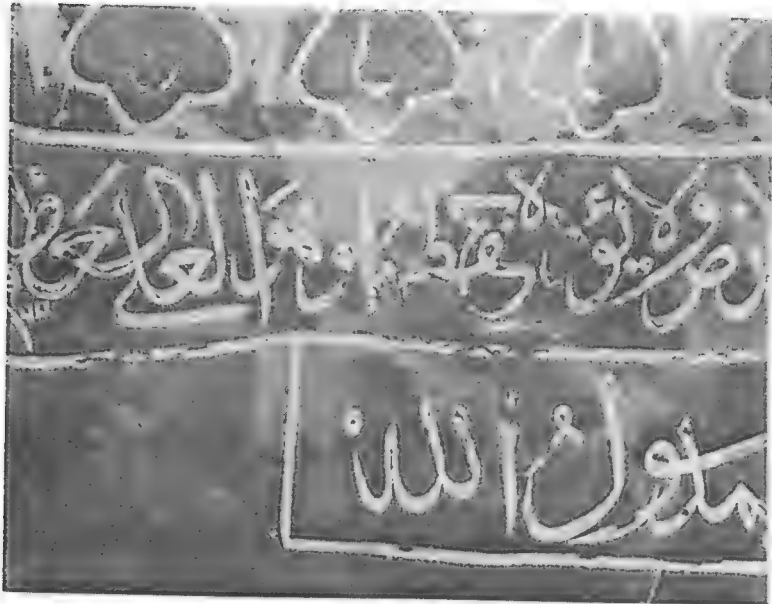 ولا يؤده حفظهما وهو العلي العظيم
رسول الله